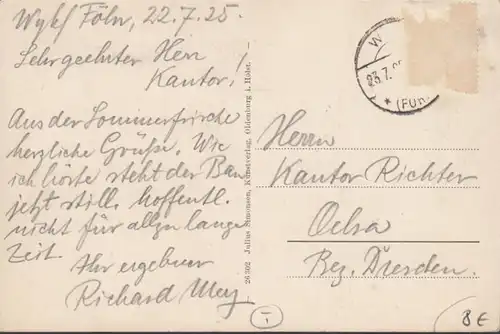 Wyk / Föhr, 22.7.25.
Sehr geehrter Herr
Kantor!
Aus der Sommerfrische
herzliche Grüße. Wie
ich hörte steht der Bau
jetzt still, hoffentl.
nicht für allzu lange
Zeit.
Ihr ergebener
Richard Mey
26302 Julius Simonsen, Kunstverlag, Oldenburg i. Holst.
W
23.7.
* (FÖH
Herrn
Kantor Richter
Oelsa
Bez. Dresden.
I
BE